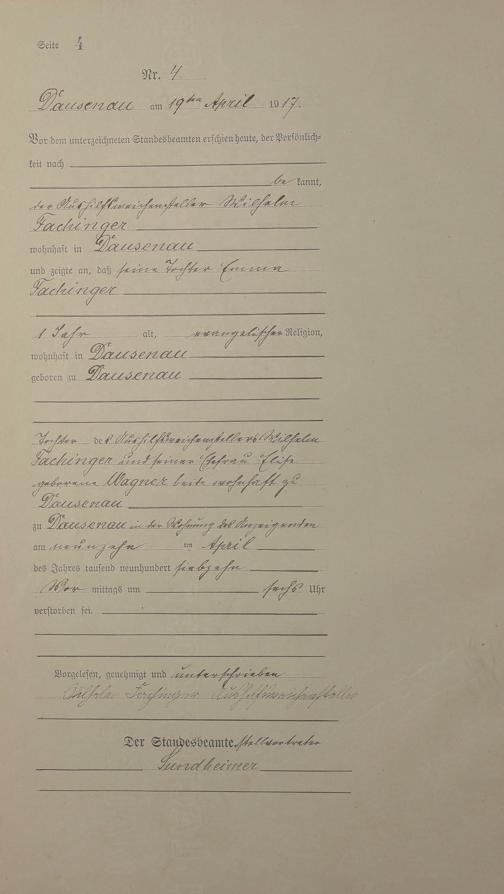 Seite 4
Nr. 4
Dausenau am 19ten April 1917.
Vor dem unterzeichneten Standesbeamten erschien heute, der Persönlich-
keit nach
be kannt,
der Aushilfsweichensteller Wilhelm
Fachinger
wohnhaft in Dausenau
und zeigte an, daß seine Tochter Emma
Fachinger
1 Jahr alt, evangelischer Religion,
wohnhaft in Dausenau
geboren zu Dausenau
Tochter des Aushilfsweichenstellers Wilhelm
Fachinger und seiner Ehefrau Elise
geborene Wagner beide wohnhaft zu
Dausenau
zu Dausenau in der Wohnung des Anzeigenden
am neunzehn ten April
des Jahres tausend neunhundert siebzehn
Vor mittags um sechs Uhr
verstorben sei.
Vorgelesen, genehmigt und unterschrieben
Wilhelm Fachinger Aushilfsweichensteller
Der Standesbeamte. Stellvertreter
Sundheimer